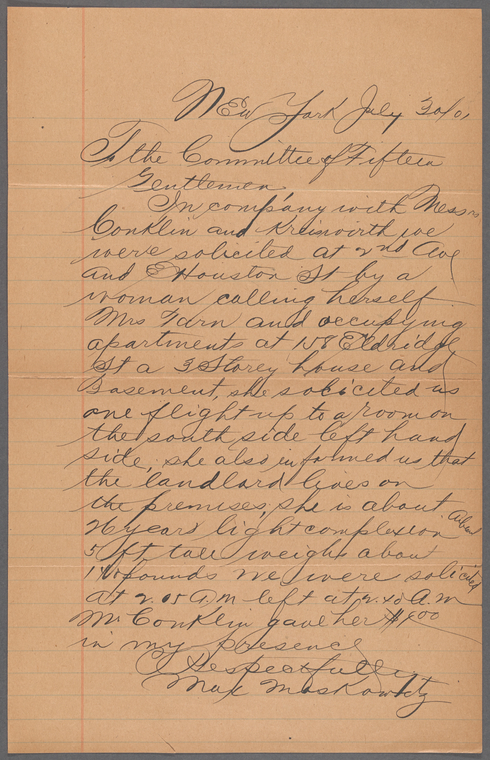 New York July 30/01
To the Committee of Fifteen
Gentlemen
In company with Messrs
Conklin and Kreisworth we
were solicited at 2nd Ave
and E Houston St by a
woman calling herself
Mrs Farn and occupying
apartments at 158 Eldridge
St a 3 Storey house and
Basement, she solicited us
one flight up to a room on
the south side left hand
side, she also informed us that
the landlord lives on
the premises, she is about
26 years light complexion about
5 ft tall weight about
pounds we were solicited
at 2.05 A.M left at 2.40 A.M
Mr Conklin gave her $1.00
in my presence
Respectfully
Max Moskowitz